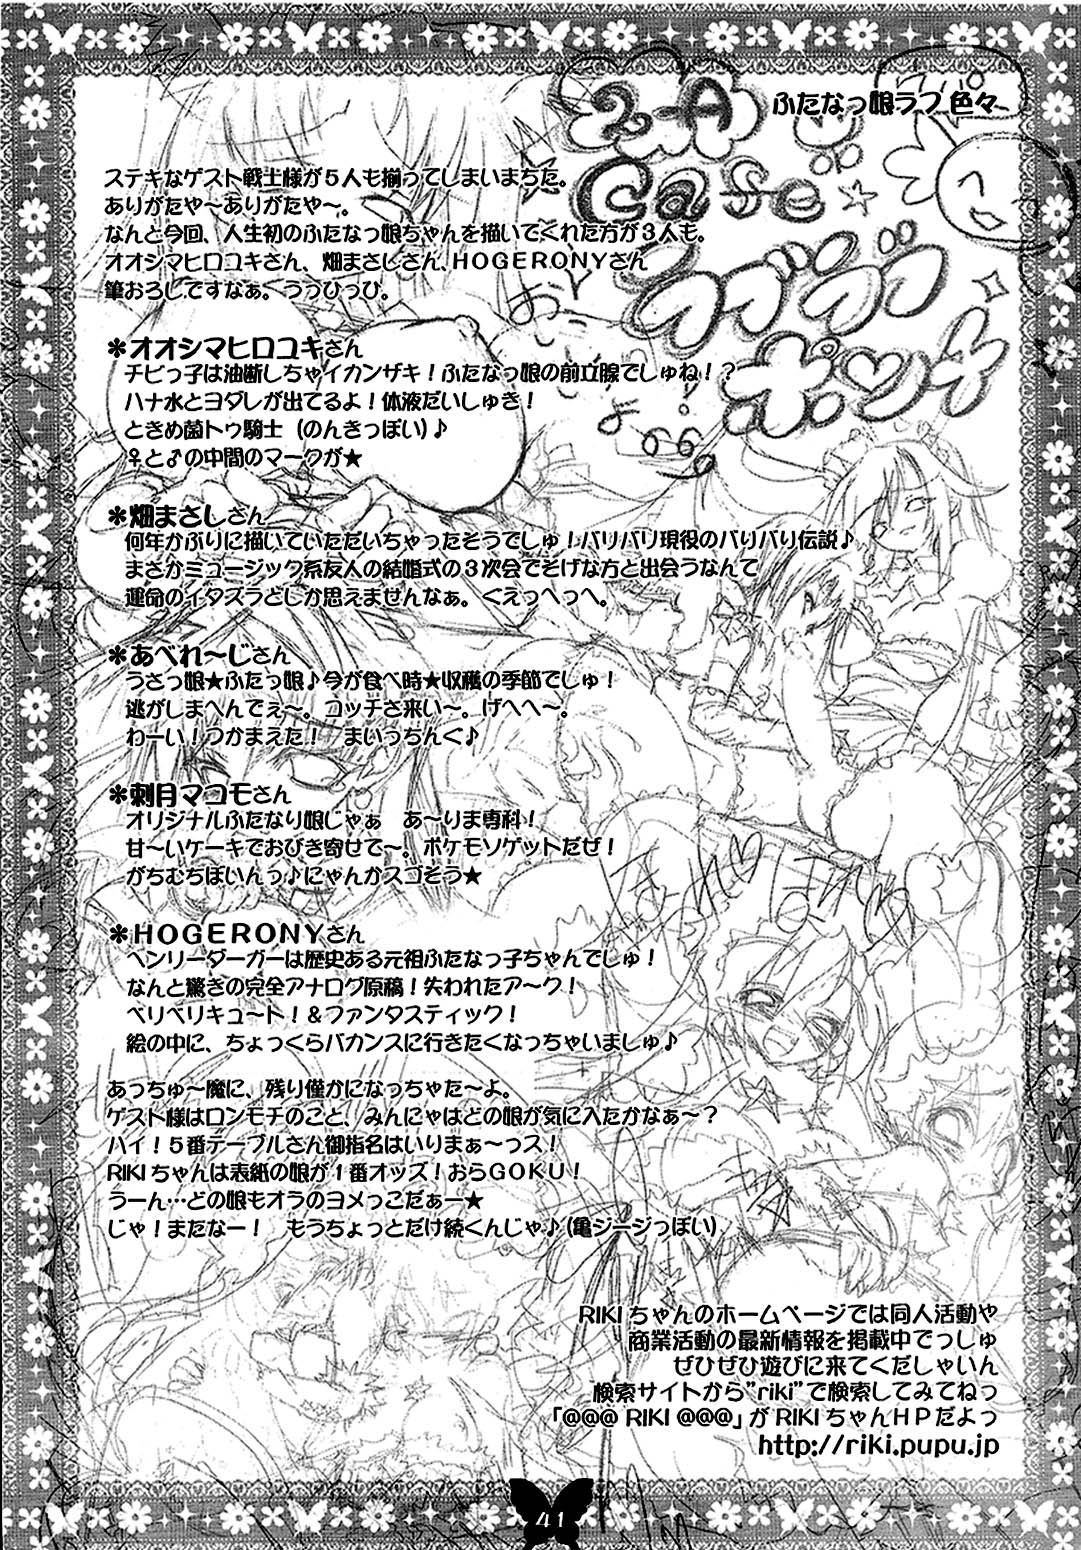 2-A
Cafe☆
ラブラブ
ポッケ
ふたなっ娘ラフ 色々
ステキなゲスト戦士様が５人も揃ってしまいまちた。
ありがたや～ありがたや～。
なんと今回、人生初のふたなっ娘ちゃんを描いてくれた方が３人も。
オオシマヒロユキさん、畑まさしさん、ＨＯＧＥＲＯＮＹさん
筆おろしですなぁ。うっひっひ。
＊オオシマヒロユキさん
チビっ子は油断しちゃイカンザキ！ふたなっ娘の前立腺でしゅね！？
ハナ水とヨダレが出てるよ！体液だいしゅき！
ときめ菌トゥ騎士（のんきっぽい）♪
♀と♂の中間のマークが★
＊畑まさしさん
何年かぶりに描いていただいちゃったそうでしゅ！バリバリ現役のバリバリ伝説♪
まさかミュージック系友人の結婚式の３次会でそげな方と出会うなんて
運命のイタズラとしか思えませんなぁ。ぐえっへっへ。
＊あべれ～じさん
うさっ娘★ふたっ娘♪今が食べ時★収穫の季節でしゅ！
逃がしまへんでぇ～。コッチさ来い～。げへへ～。
わーい！つかまえた！　まいうっちんぐ♪
＊刺月マコモさん
オリジナルふたなり娘じゃぁ　あ～りま専科！
甘～いケーキでおびき寄せて～。ポケモソゲットだぜ！
がちむちぼいんっ♪にゃんかスゴそう★
＊ＨＯＧＥＲＯＮＹさん
ヘンリーダーガーは歴史ある元祖ふたなっ子ちゃんでしゅ！
なんと驚きの完全アナログ原稿！失われたア～ク！
ベリベリキュ～ト！＆ファンタスティック！
絵の中に、ちょっくらバカンスに行きたくなっちゃいましゅ♪
あっちゅ～魔に、残り僅かになっちゃた～よ。
ゲスト様はロンモチのこと、みんにゃはどの娘が気に入たかなぁ～？
ハイ！５番テーブルさん御指名はいりまぁ～っス！
RIKIちゃんは表紙の娘が１番オッズ！おらＧＯＫＵ！
うーん…どの娘もオラのヨメっこだぁー★
じゃ！またなー！　もうちょっとだけ続くんじゃ♪（亀ジージっぽい）
RIKIちゃんのホームページでは同人活動や
商業活動の最新情報を掲載中でっしゅ
ぜひぜひ遊びに来てくだしゃいん
検索サイトから”riki”で検索してみてねっ
「＠＠＠ RIKI ＠＠＠」が RIKIちゃんＨＰだよっ
http://riki.pupu.jp
41